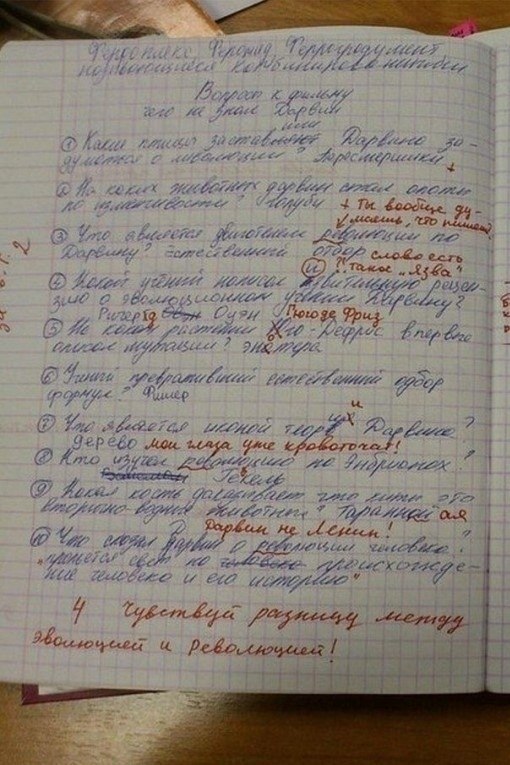 Вопросы к фильму
чего не знал Дарвин
① Какие птицы заставляют или Дарвина за-
думаться о эволюции? Пересмешники +
② На каких животных дарвин ставил опыты
по изменчивости? Голуби + Ты вообще ду-
маешь, что пишешь,
③ Что является двигателем революции по
Дарвину? Естественный отбор слово есть
и ?! такое „язва"
④ Какой учёный написал
зию о эволюционном учении Дарвину?
Ричард Оуэн Гюго де Фриз
⑤ На каком растении Гюго-Дефриз впервые
описал мутации? энотера
⑥ Учёный превративший естественный отбор
формул? Фишер
⑦ Что является иконой теории Дарвина?
дерево мои глаза уже кровоточат!
⑧ Кто изучал революцию по Эмбрионах?
Геккель
⑨ Какая кость доказывает что киты это
вторично-водные животные? Таранной ая
Дарвин не Ленин!
⑩ Что сказал Дарвин о революции человека?
„прольётся свет на происхожде-
ние человека и его историю"
4 Чувствуй разницу между
эволюцией и революцией!